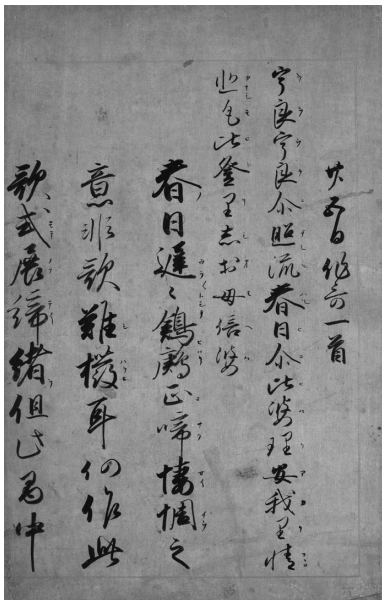 廿五日作哥一首
宇良宇良尓照流春日尓比婆理安我里情
悲毛比登里志於母倍婆
春日遅々鶬鶊正啼悽惆之
意非歌難撥耳仍作此
歌式展締緒但此巻中